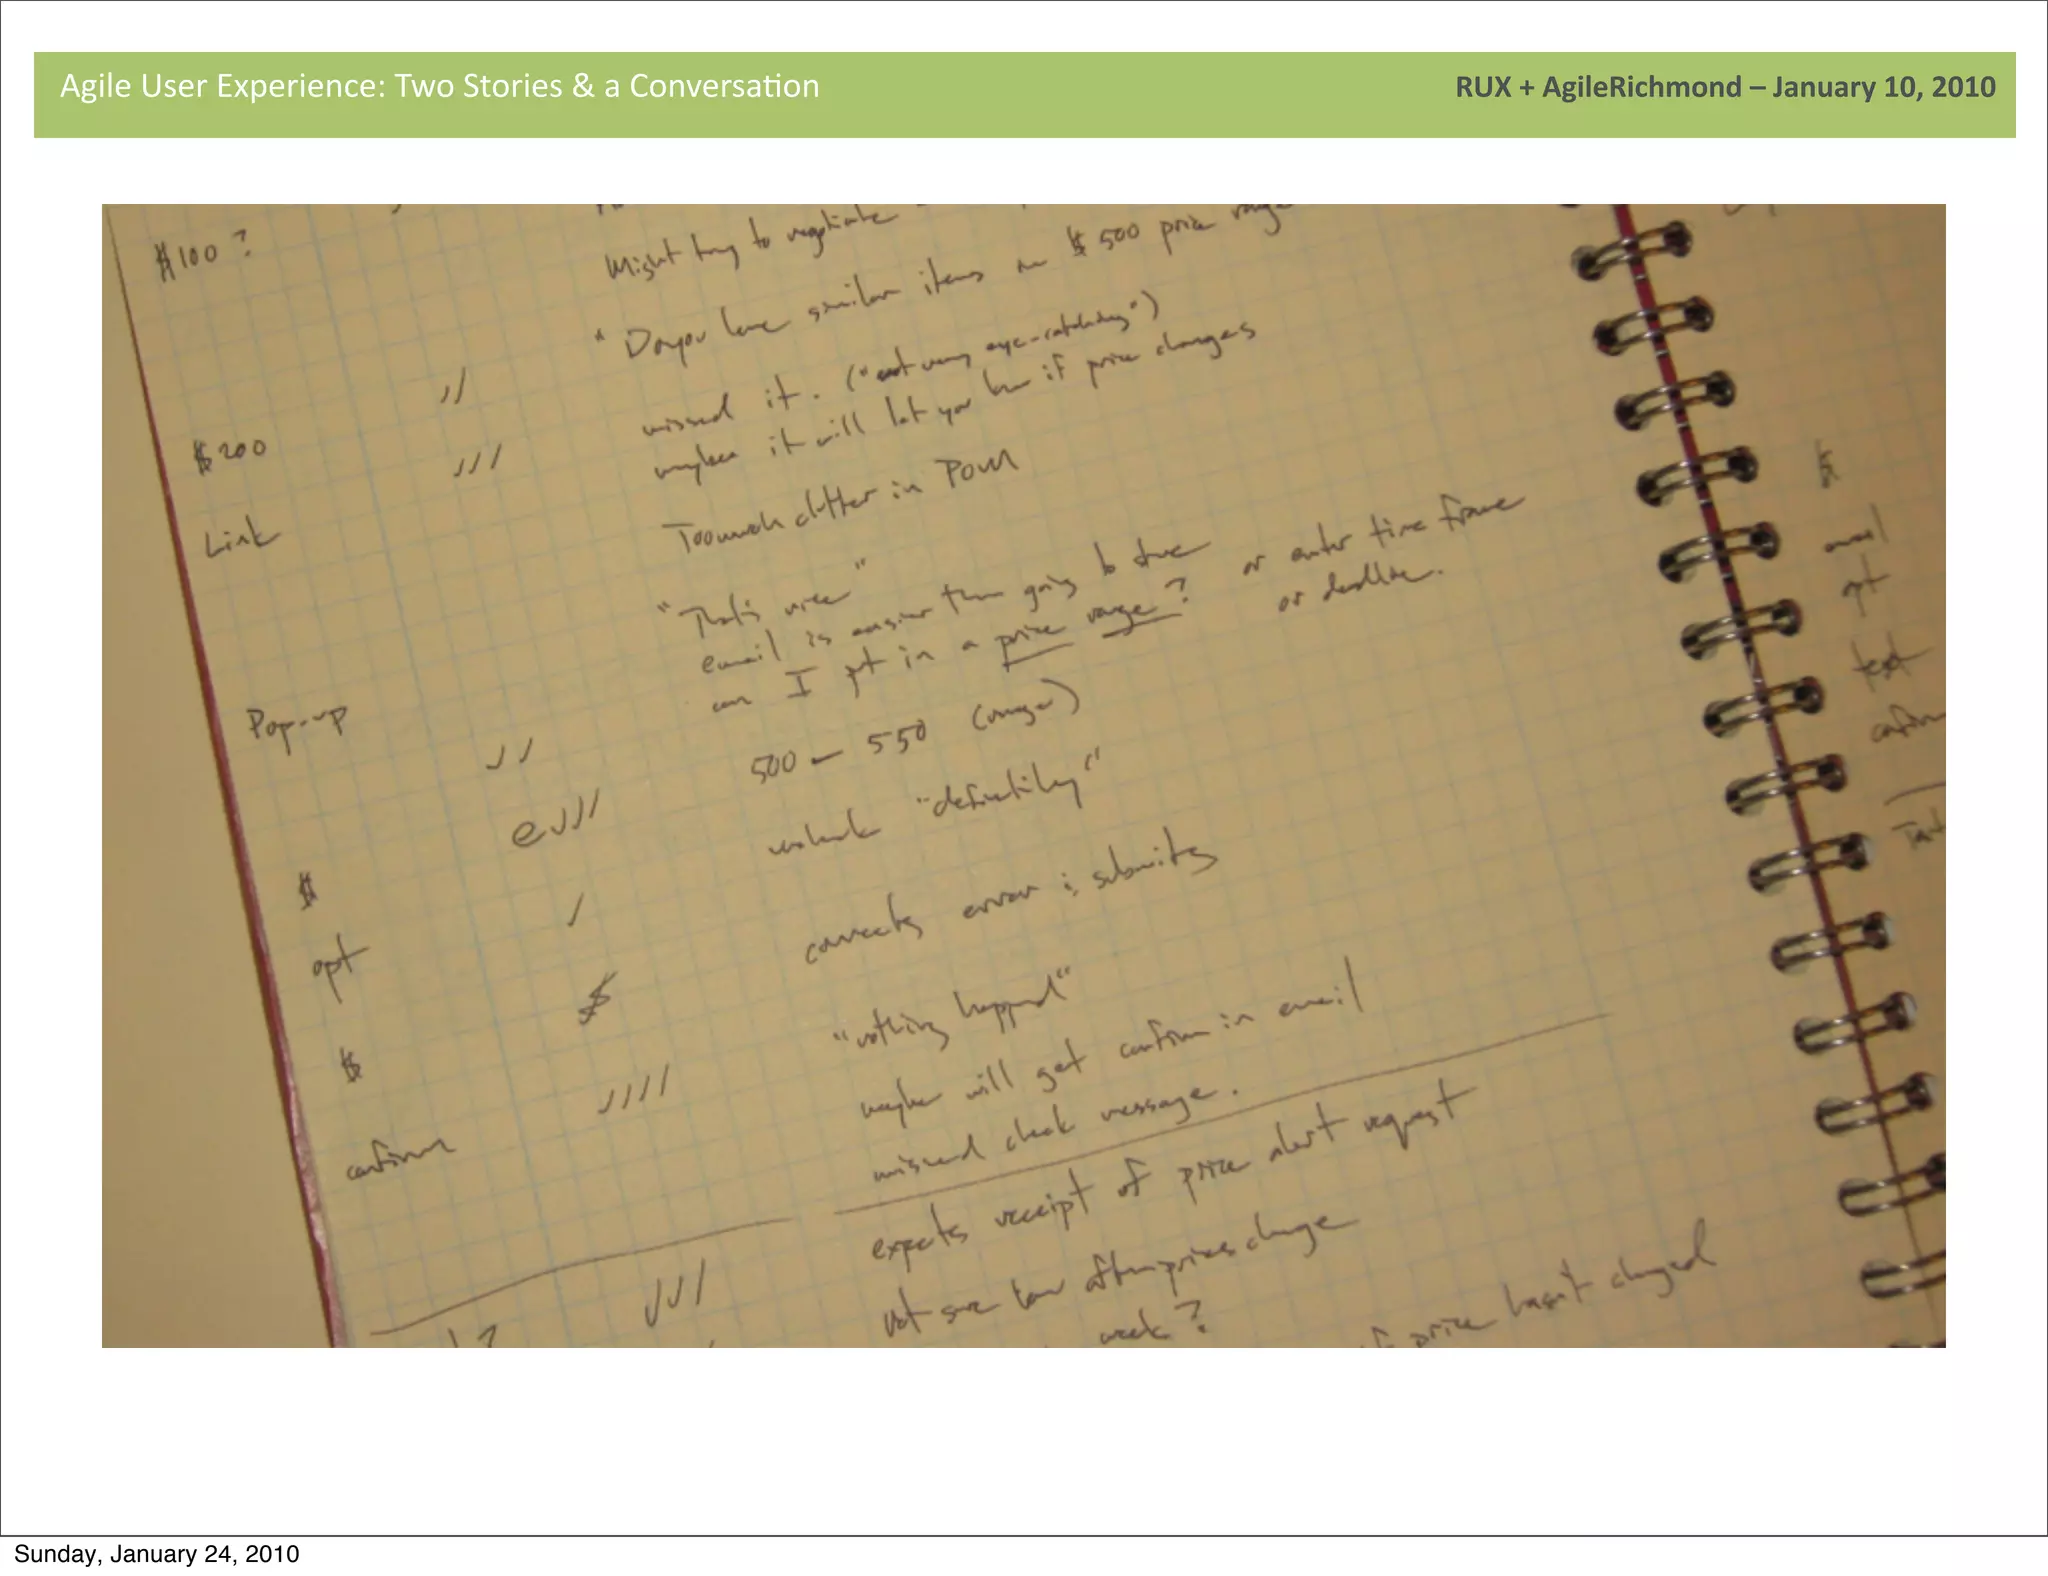 Agile User Experience: Two Stories & a Conversation
RUX + AgileRichmond – January 10, 2010
$100?
Might try to negotiate
"Do you have similar items in $500 price range
$200
missed it. ("not very eye-catching")
maybe it will let you know if price changes
Link
Too much clutter in POUR
"That's nice"
email is easier than going to store or enter time frame
can I put in a price range? or deadline.
Pop-up
500 – 550 (range)
"definitiley"
$
corrects error & submits
opt
$
"nothing happened"
$
maybe will get confirm in email
confirm
missed check message.
expects receipt of price alert request
not sure how often prices change
week?
if price hasn't changed
email
opt
text
confirm
Sunday, January 24, 2010